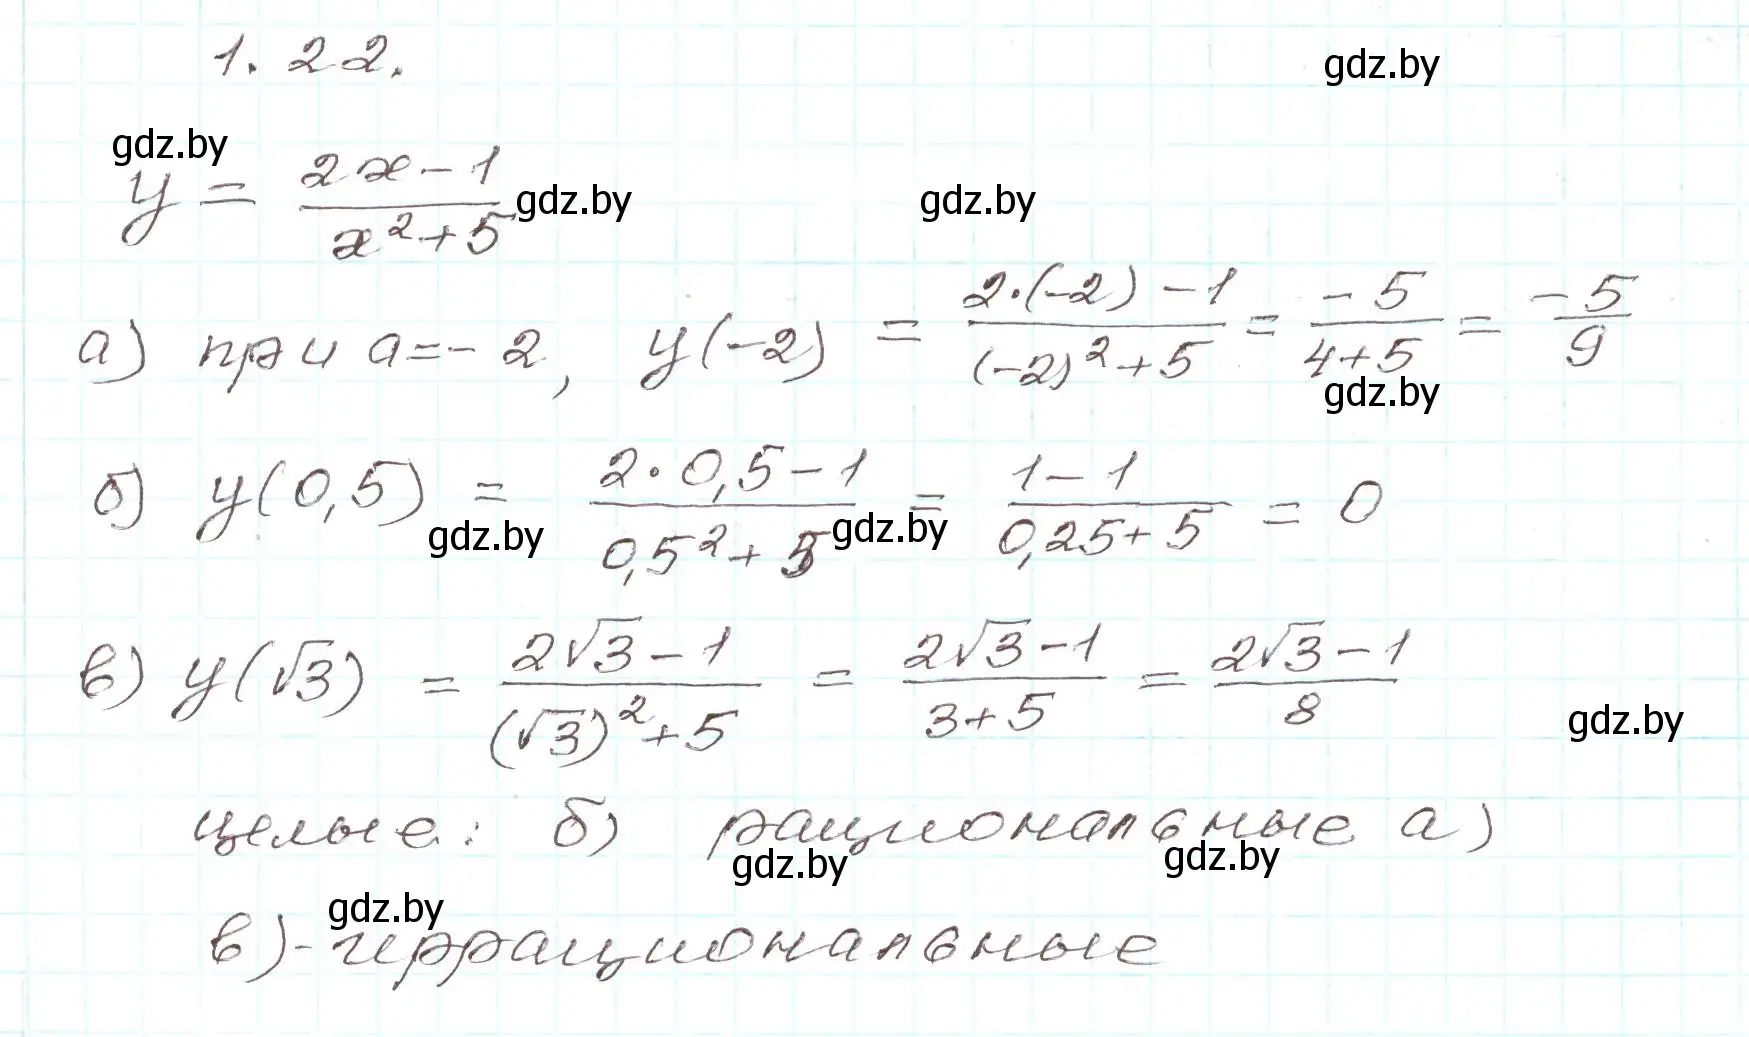 1.22.
gdz.by
gdz.by
y = (2x-1)/(x²+5)
gdz.by
gdz.by
а) при а=-2, y(-2) = (2·(-2)-1)/((-2)²+5) = (-5)/(4+5) = (-5)/9
gdz.by
б) y(0,5) = (2·0,5-1)/(0,5²+5) = (1-1)/(0,25+5) = 0
gdz.by
gdz.by
в) y(√3) = (2√3-1)/((√3)²+5) = (2√3-1)/(3+5) = (2√3-1)/8
gdz.by
целые: б) рациональные а)
gdz.by
gdz.by
gdz.by
в)-иррациональные